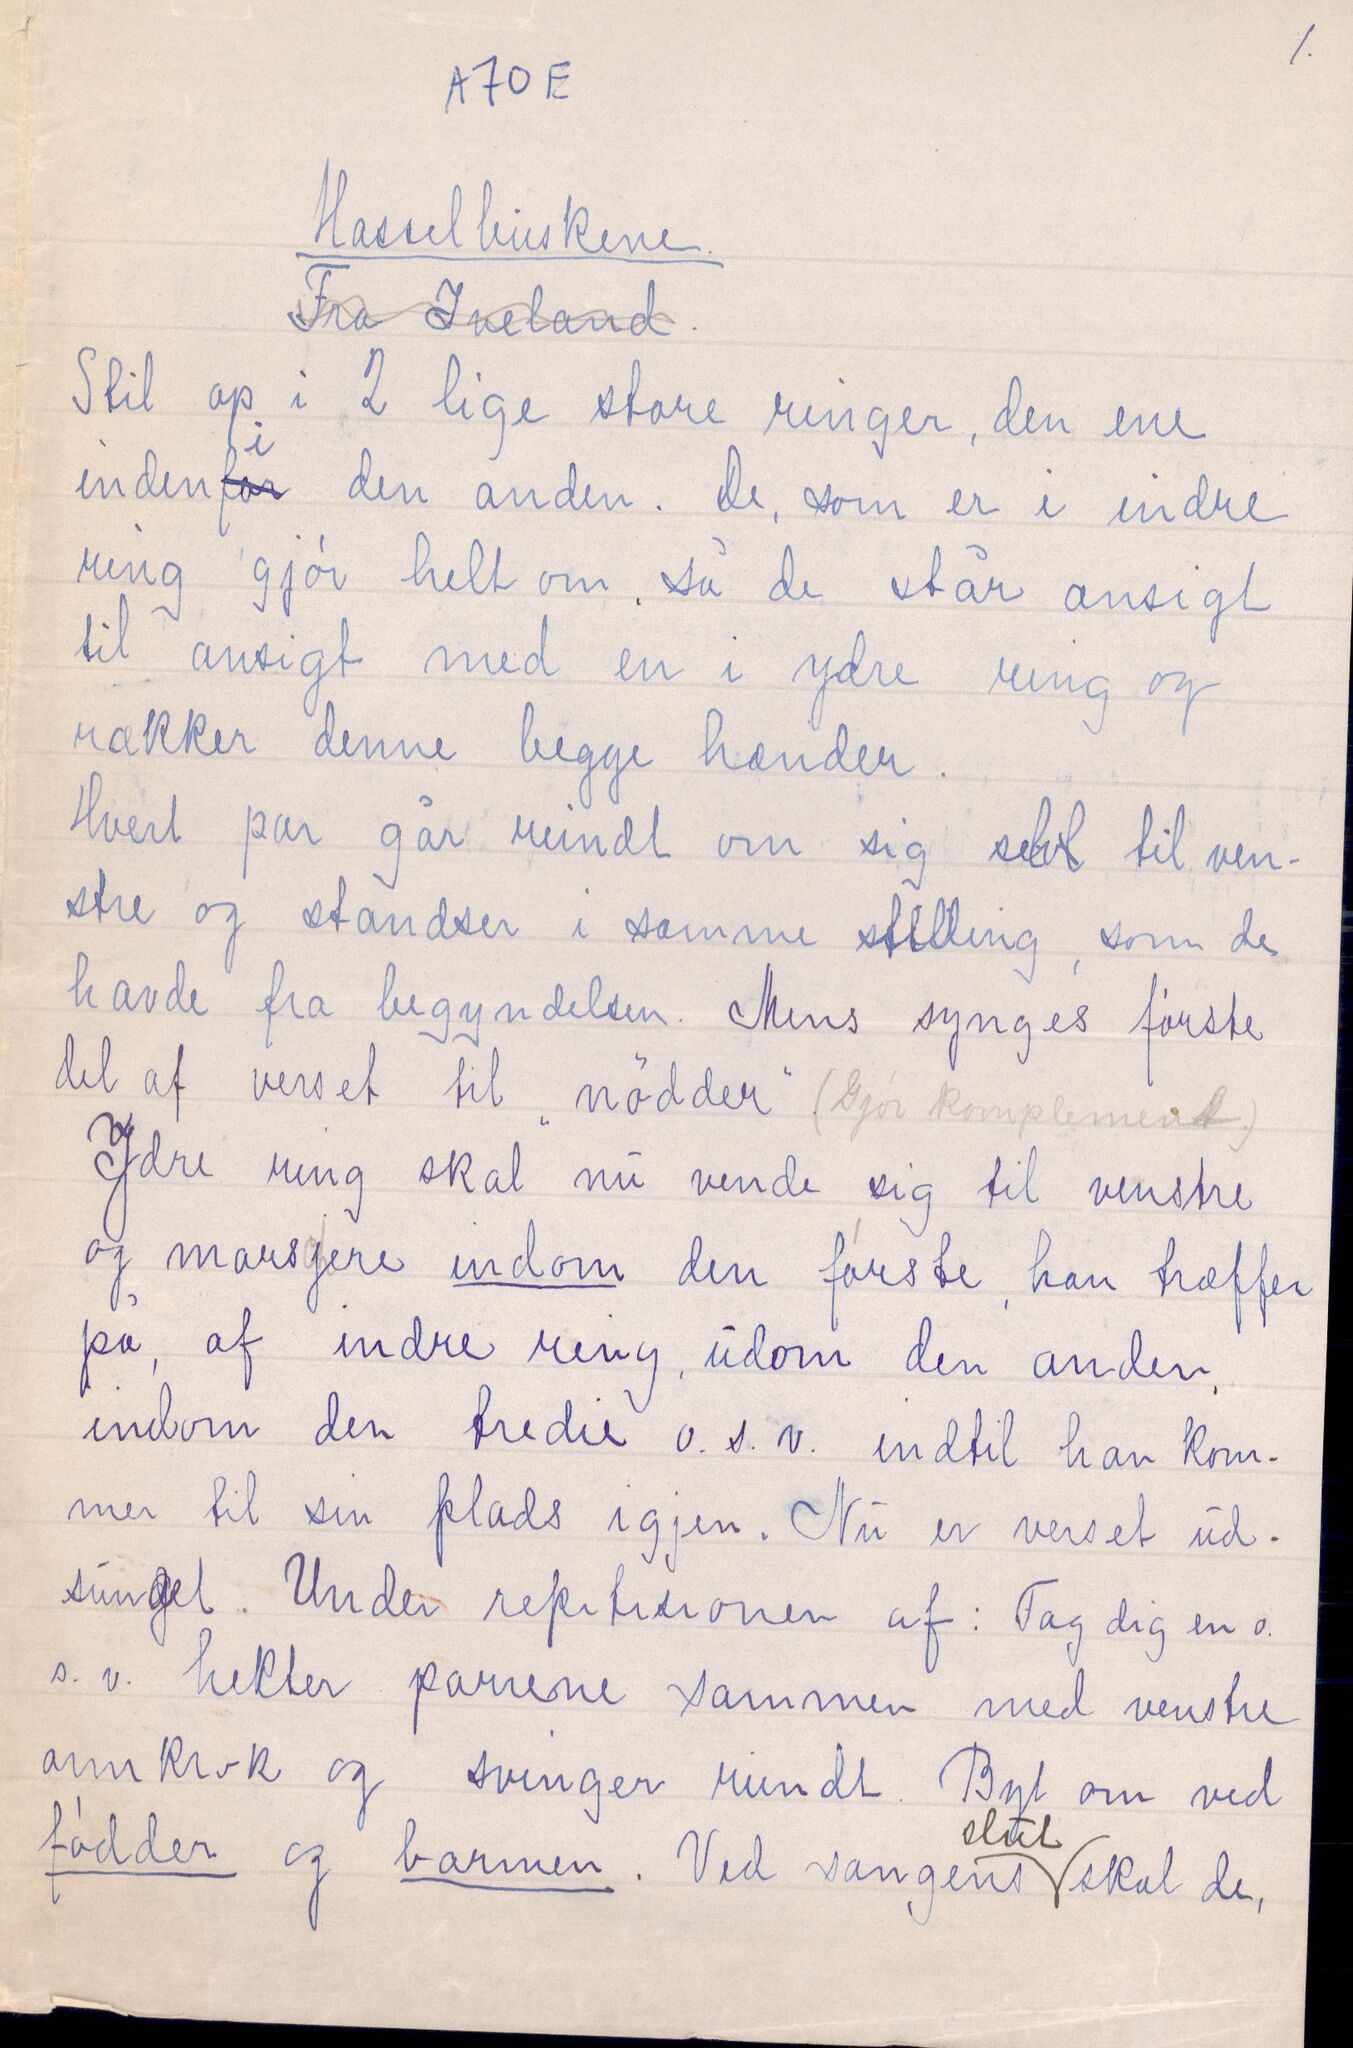 1.
A70E
Hasselbuskene.
Fra Iveland.
Stil op i 2 lige store ringer, den ene
i
indenfor den anden. De, som er i indre
ring gjör helt om, så de står ansigt
til ansigt med en i ydre ring og
rækker denne begge hænder.
Hvert par går rundt om sig selv til ven-
stre og standser i samme stilling, som de
havde fra begyndelsen. Mens synges første
del af verset til "nödder" (Gjör kompliment.)
Ydre ring skal nu vende sig til venstre
og marsjere indom den første, han træffer
på, af indre ring, udom den anden,
indom den tredie o.s.v. indtil han kom-
mer til sin plads igjen. Nu er verset ud-
sunget. Under repitisionen af: Tag dig en o.
s.v. hekter parrene sammen med venstre
armkrok og svinger rundt. Byt om ved
slut
fødder og barmen. Ved sangens skal de,